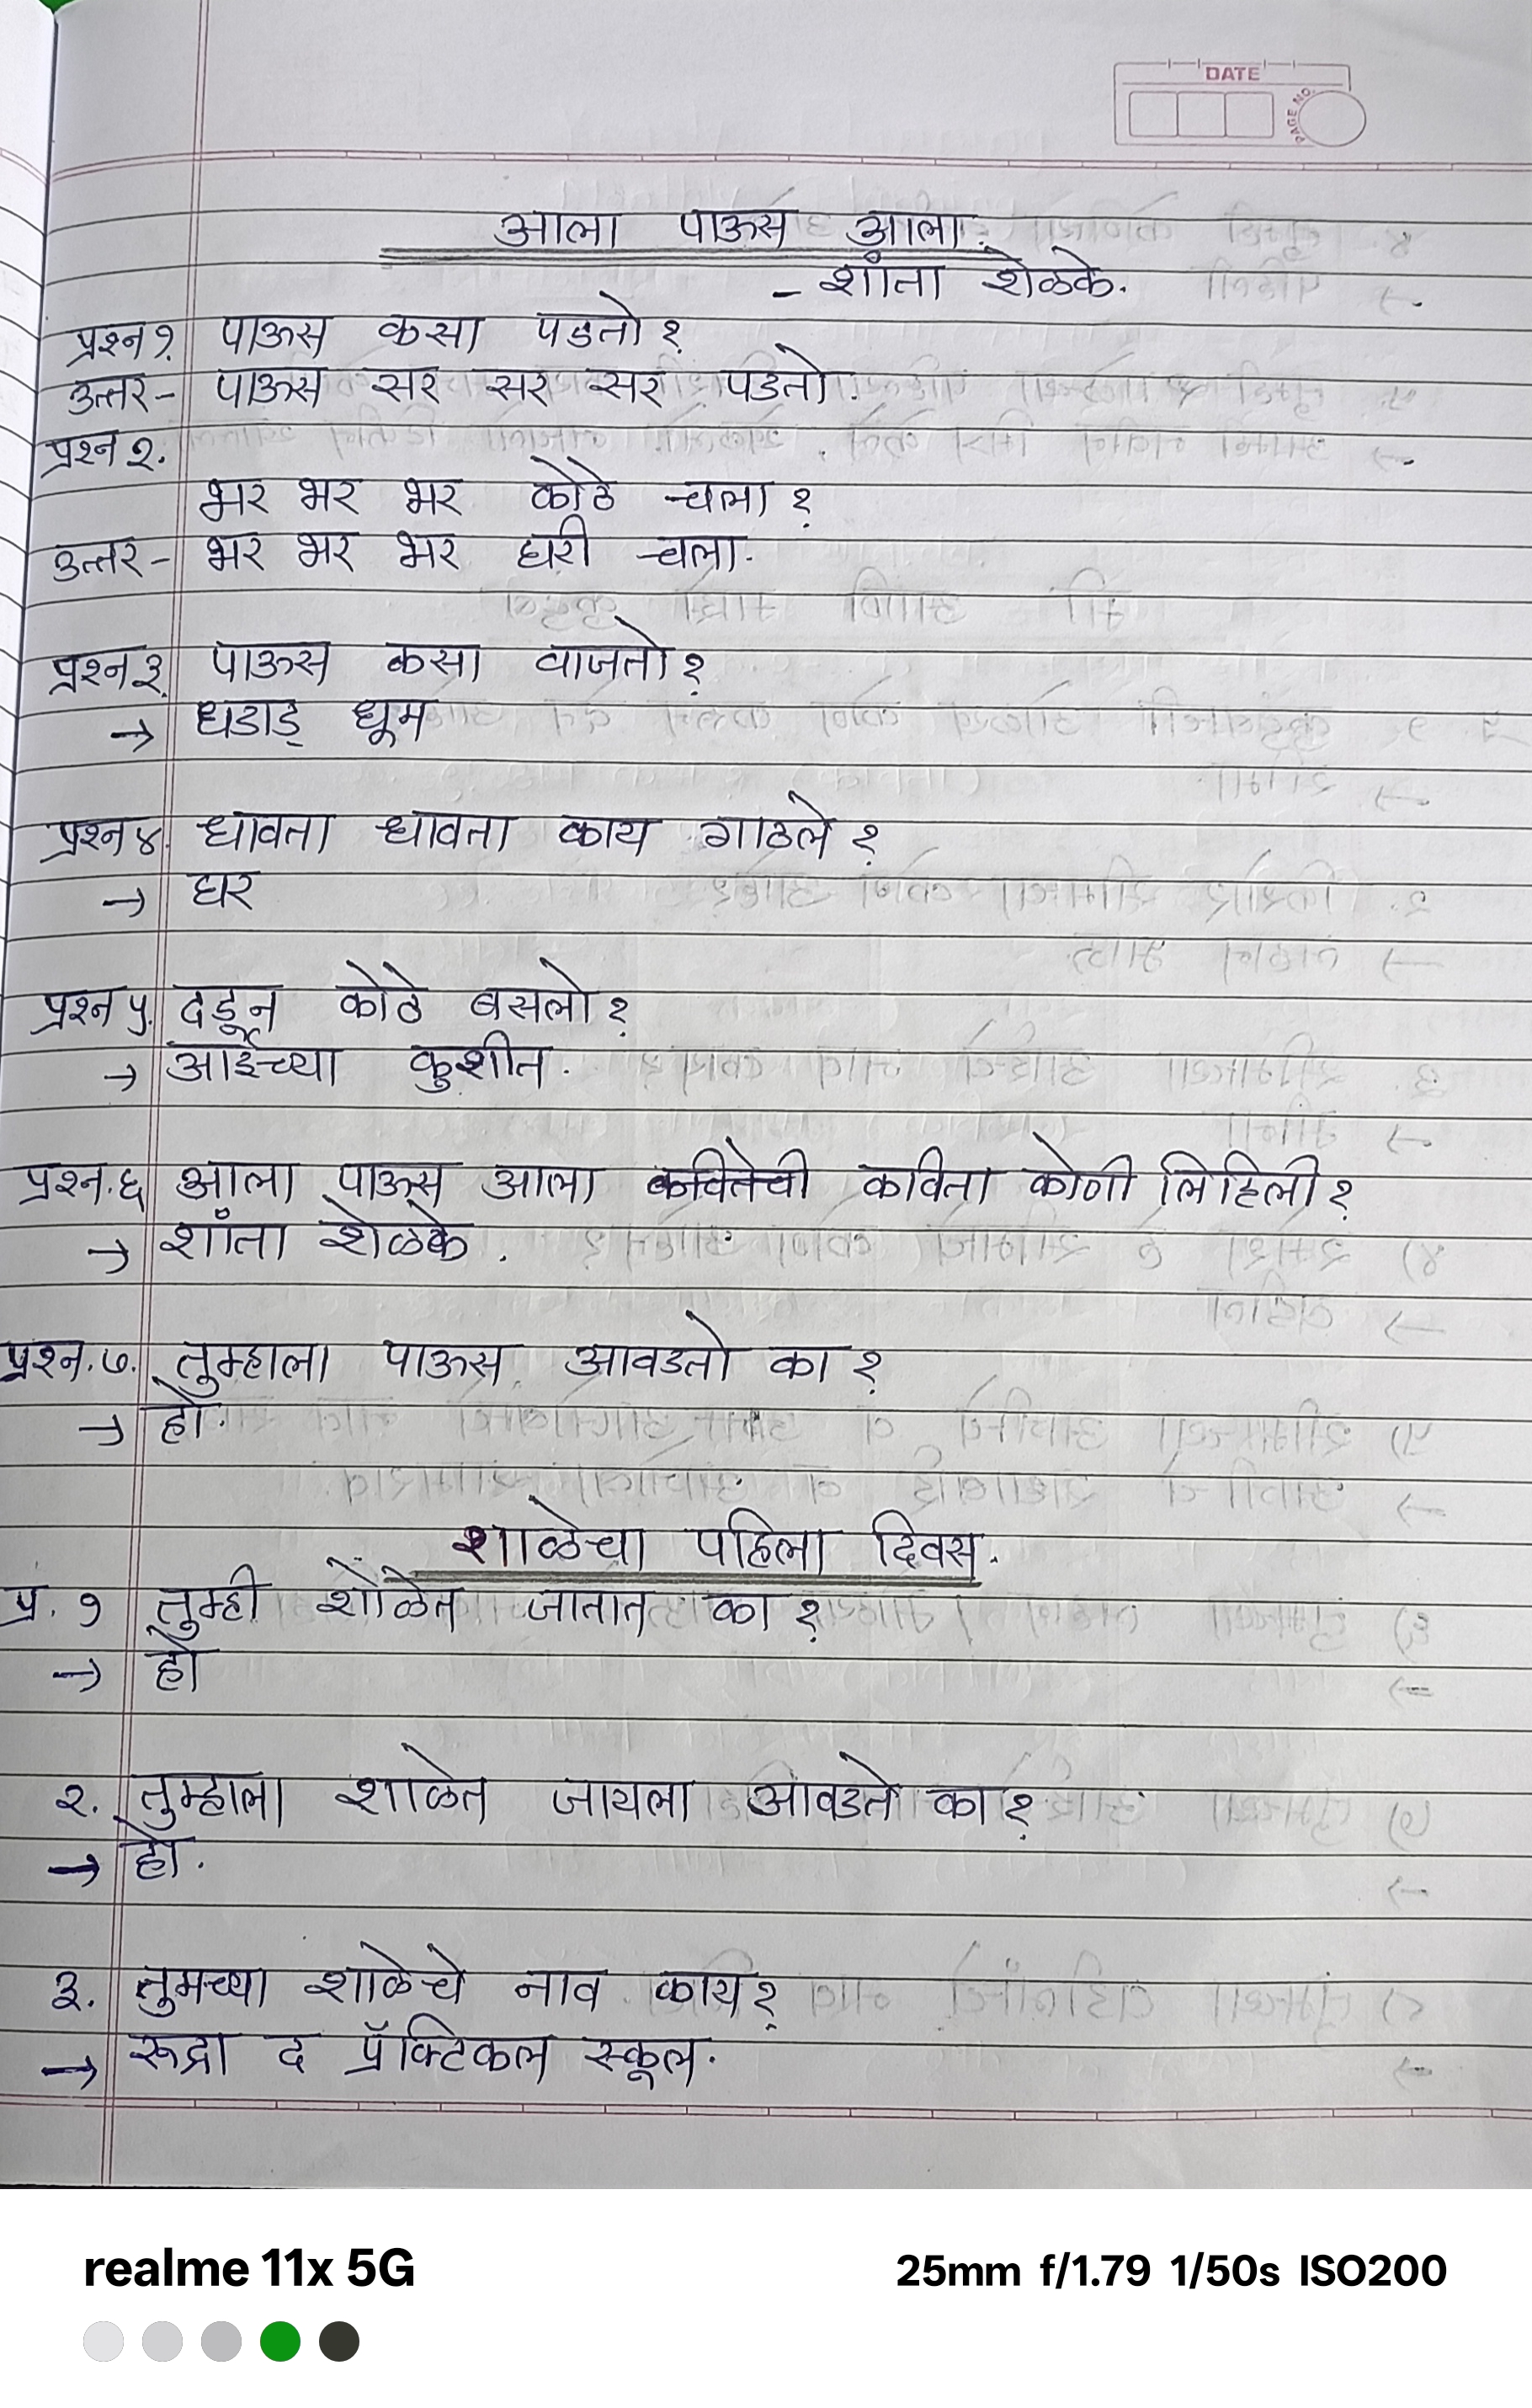 DATE
PAGE NO.
आला पाऊस आला.
- शाँता शेळके.
प्रश्न १. पाऊस कसा पडतो?
उत्तर- पाऊस सर सर सर पडतो.
प्रश्न २.
भर भर भर कोठे चला?
उत्तर- भर भर भर घरी चला.
प्रश्न ३. पाऊस कसा वाजतो?
→ धडाड् धूम
प्रश्न ४. धावता धावता काय गाठले?
→ घर
प्रश्न ५. दडून कोठे बसलो?
→ आईच्या कुशीत.
प्रश्न.६ आला पाऊस आला कवितेची कविता कोणी लिहिली?
→ शाँता शेळके.
प्रश्न.७. तुम्हाला पाऊस आवडतो का?
→ हो.
शाळेचा पहिला दिवस.
प्र. १ तुम्ही शाळेत जातात का?
→ हो
२. तुम्हाला शाळेत जायला आवडते का?
→ हो.
३. तुमच्या शाळेचे नाव काय?
→ रूद्रा द प्रॅक्टिकल स्कूल.
realme 11x 5G
25mm f/1.79 1/50s ISO200